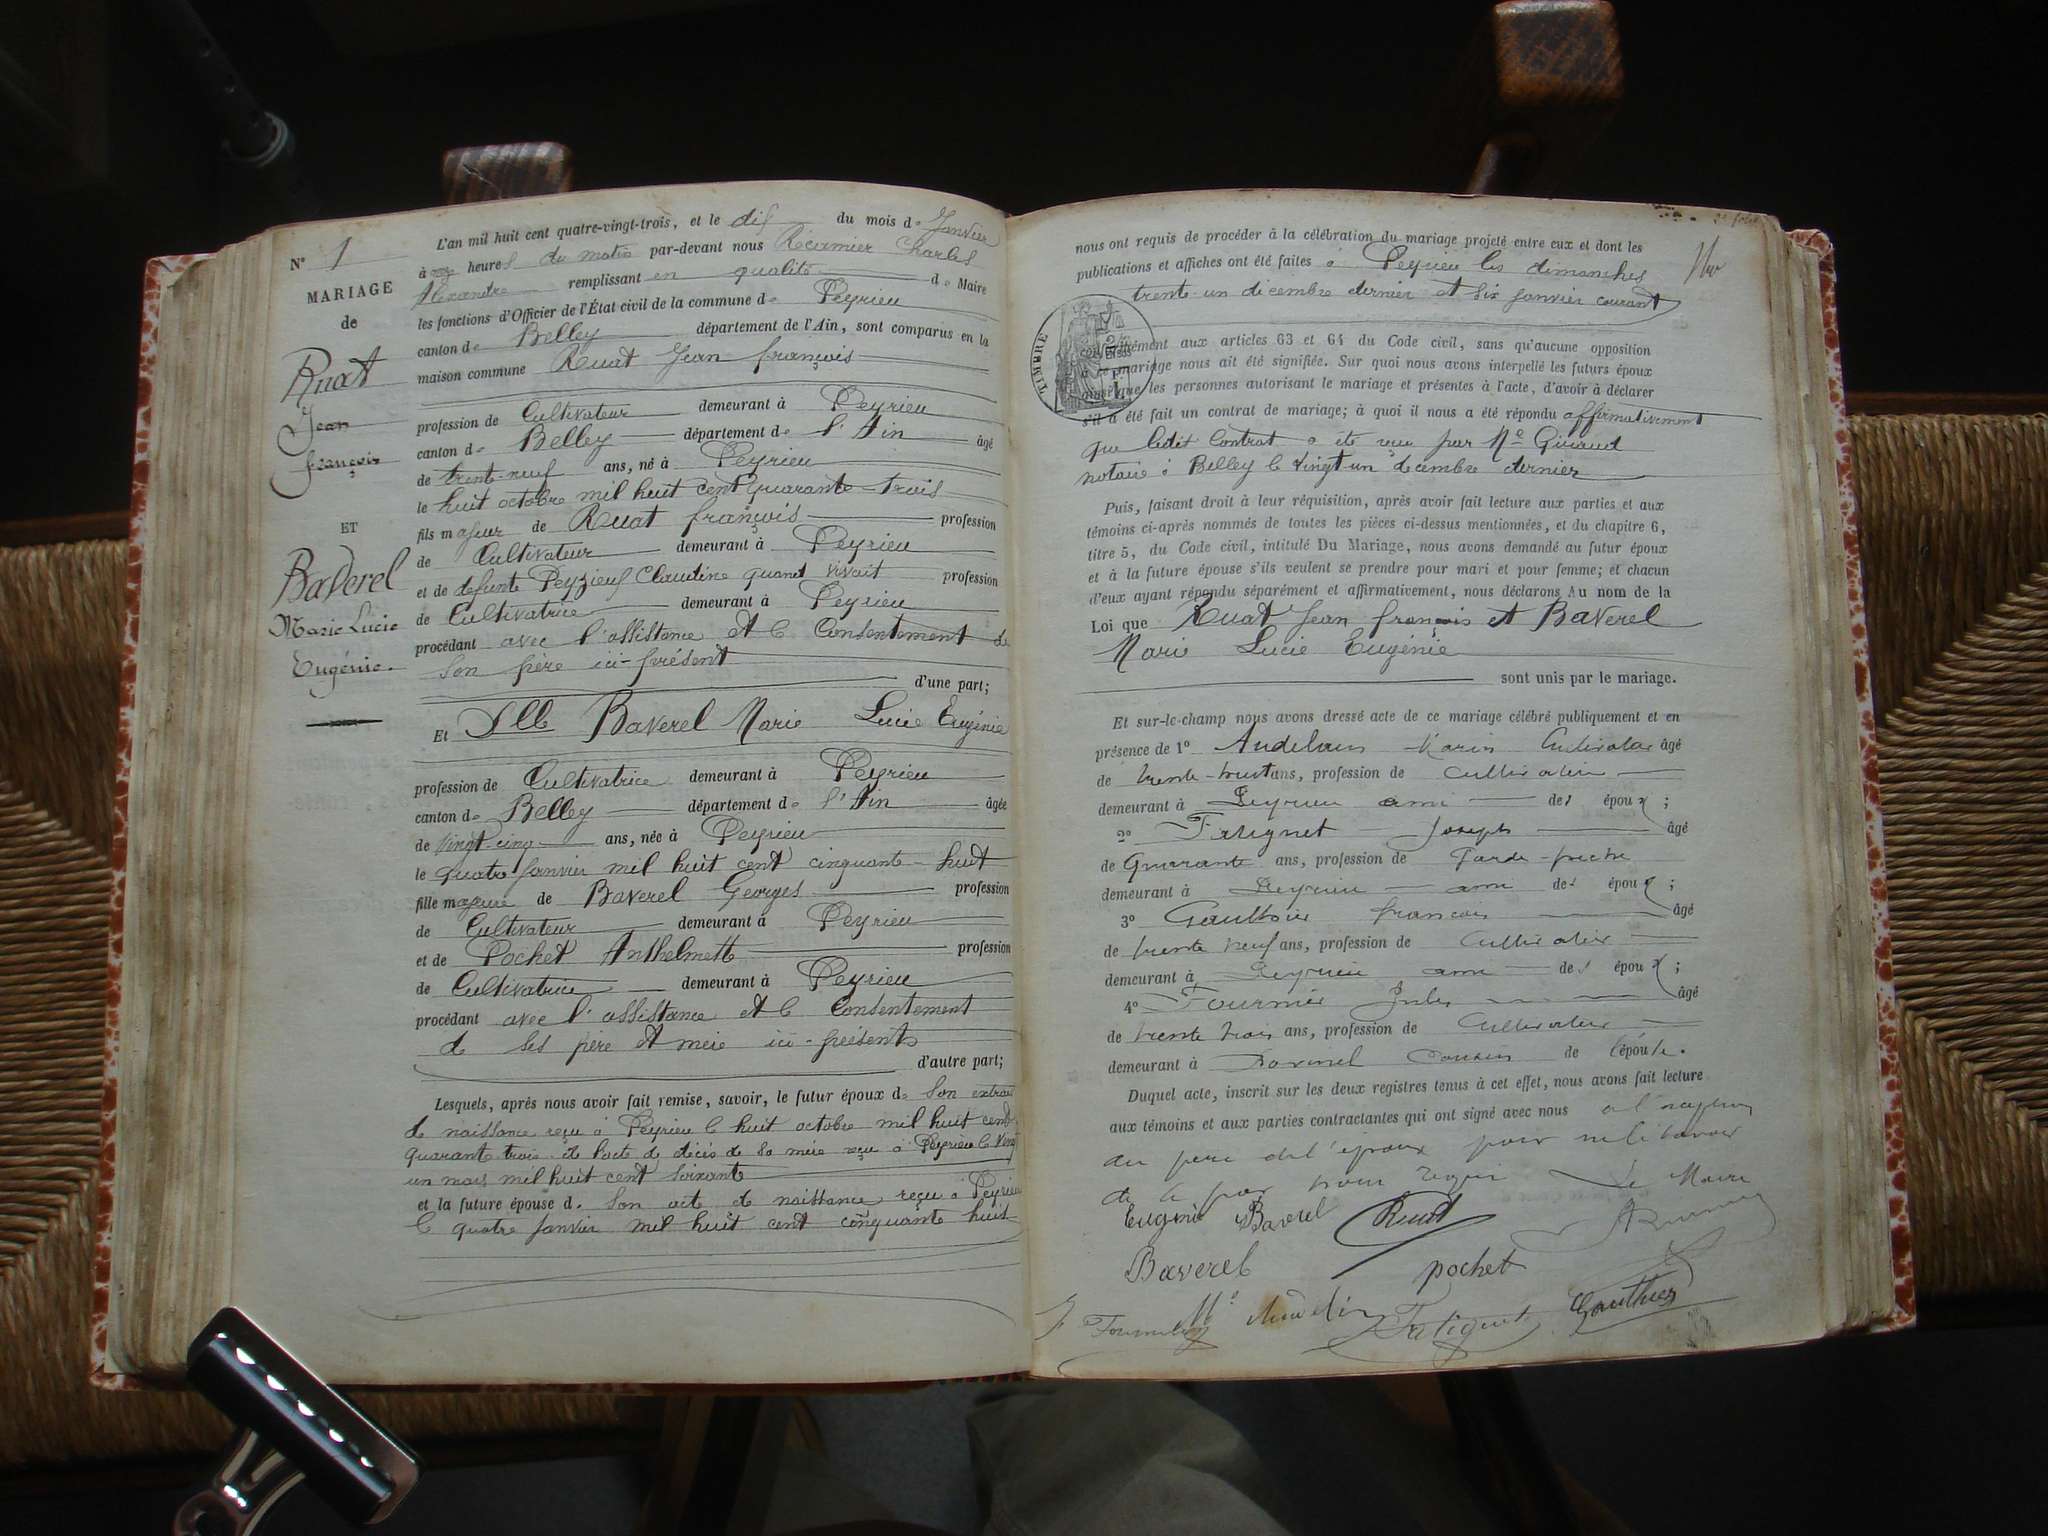 N° 1
MARIAGE
de
Ruat
Jean
françois
ET
Baverel
Marie Lucie
Eugénie.
L'an mil huit cent quatre-vingt-trois, et le dix du mois de Janvier
à onze heures du matin par-devant nous Récamier Charles
Alexandre remplissant en qualité de Maire
les fonctions d'Officier de l'État civil de la commune de Peyrieu
canton de Belley département de l'Ain, sont comparus en la
maison commune Ruat Jean françois
profession de Cultivateur demeurant à Peyrieu
canton de Belley département de l'Ain âgé
de trente-neuf ans, né à Peyrieu
le huit octobre mil huit cent quarante-trois
fils majeur de Ruat françois profession
de Cultivateur demeurant à Peyrieu
et de defunte Peyzieux Claudine quand vivait profession
de Cultivatrice demeurant à Peyrieu
procédant avec l'assistance et le Consentement de
son père ici-présent
d'une part;
Et Dlle Baverel Marie Lucie Eugénie
profession de Cultivatrice demeurant à Peyrieu
canton de Belley département de l'Ain âgée
de vingt-cinq ans, née à Peyrieu
le quatre janvier mil huit cent cinquante-huit
fille majeure de Baverel Georges profession
de Cultivateur demeurant à Peyrieu
et de Pochet Anthelmette profession
de Cultivatrice demeurant à Peyrieu
procédant avec l'assistance et le Consentement
de ses père et mère ici-présents
d'autre part;
Lesquels, après nous avoir fait remise, savoir, le futur époux de son extrait
de naissance reçu à Peyrieu le huit octobre mil huit cent
quarante trois et l'acte de décès de sa mère reçu à Peyrieu le vingt
un mars mil huit cent soixante
et la future épouse d. son acte de naissance reçu à Peyrieu
le quatre janvier mil huit cent cinquante huit
nous ont requis de procéder à la célébration du mariage projeté entre eux et dont les
publications et affiches ont été faites à Peyrieu les dimanches
trente-un décembre dernier et six janvier courant
TIMBRE
conformément aux articles 63 et 64 du Code civil, sans qu'aucune opposition
à ce mariage nous ait été signifiée. Sur quoi nous avons interpellé les futurs époux
ainsi que les personnes autorisant le mariage et présentes à l'acte, d'avoir à déclarer
s'il a été fait un contrat de mariage; à quoi il nous a été répondu affirmativement
que ledit Contrat a été reçu par Me Giraud
notaire à Belley le vingt un décembre dernier
Puis, faisant droit à leur réquisition, après avoir fait lecture aux parties et aux
témoins ci-après nommés de toutes les pièces ci-dessus mentionnées, et du chapitre 6,
titre 5, du Code civil, intitulé Du Mariage, nous avons demandé au futur époux
et à la future épouse s'ils veulent se prendre pour mari et pour femme; et chacun
d'eux ayant répondu séparément et affirmativement, nous déclarons Au nom de la
Loi que Ruat Jean françois et Baverel
Marie Lucie Eugénie
sont unis par le mariage.
Et sur-le-champ nous avons dressé acte de ce mariage célébré publiquement et en
présence de 1° âgé
de ans, profession de cultivateur
demeurant à Peyrieu ami des époux;
2° Fatignet Joseph âgé
de Quarante ans, profession de Garde-peche
demeurant à Peyrieu ami des époux;
3° Gauthier francois âgé
de trente neuf ans, profession de cultivateur
demeurant à Peyrieu ami des époux;
4° Fournier Jules âgé
de trente trois ans, profession de cultivateur
demeurant à cousin de l'épouse.
Duquel acte, inscrit sur les deux registres tenus à cet effet, nous avons fait lecture
aux témoins et aux parties contractantes qui ont signé avec nous a l'exception
du pere de l'époux pour ne le savoir
de ce par nous requis Le Maire
Eugénie Baverel Ruat
Baverel pochet
Fatignet Gauthier